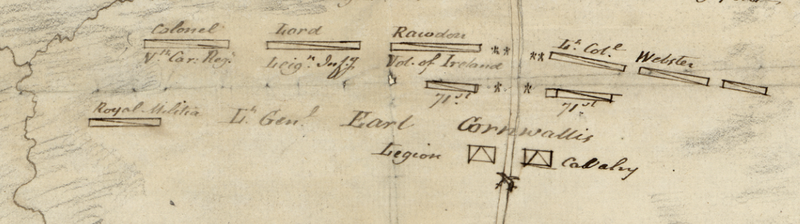 Colonel Lord Rawdon Lt. Col.l Webster
Vth Car. Reg. Leign. Inf.y Vol. of Ireland
71st 71st
Royal Militia Lt. Genl. Earl Cornwallis
Legion Cavalry